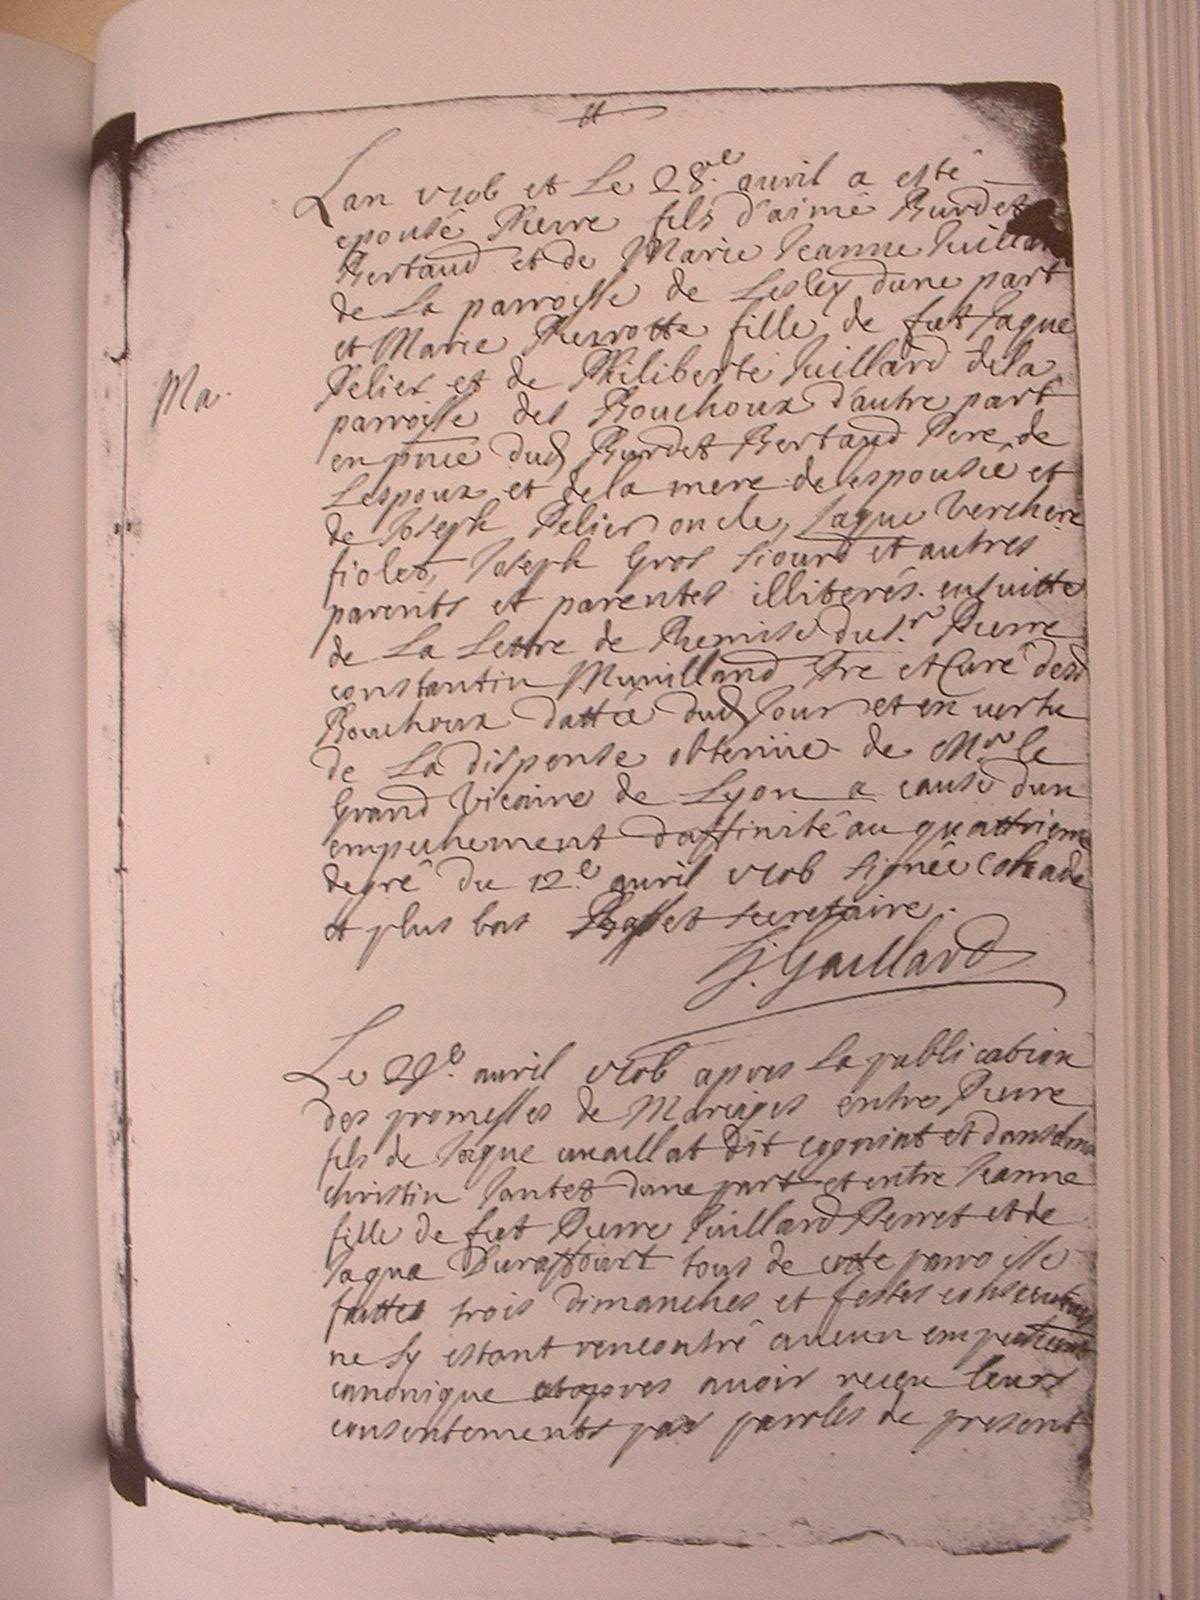 Lan 1706 et Le 28.e auril a esté
epousé Pierre fils d'aimé Burdet
Bertaud et de Marie Jeanne Juillard
de La parroisse de Lesley dune part
et Marie Pierrotte fille de fut Jaque
Pelier et de Philiberte Juillard dela
Ma.
parroisse des Bouchoux d'autre part
en pnce dud Burdet Bertaud Pere de
Lespoux et dela mere de lespousée et
de Joseph Pelier oncle, Jaque Verchere
fiolet, Joseph Gros Siourd et autres
parents et parentes illiterés. ensuitte
de La Lettre de Remise du Sr. Pierre
constantin Muuilland Ptre et Curé desd
Bouchoux dattée dud Jour et en vertu
de La dispense obtenue de Mr. le
Grand Vicaire de Lyon a cause dun
empechement d'affinité au quattrieme
degré du 12.e auril 1706 signée
et plus bas Basset secretaire.
J. Gaillard
Le 29.e auril 1706 apres La publication
des promesses de Mariages entre Pierre
fils de Jaque dit et
christin Jantet dune part et entre Jeanne
fille de fut Pierre Juillard Perret et de
Jaqua Duraffourt tous de cette parroisse
faittes trois dimanches et festes consecutiues
ne sy estant rencontré aucun empechement
canonique et apres auoir receu leurs
consentements par paroles de present